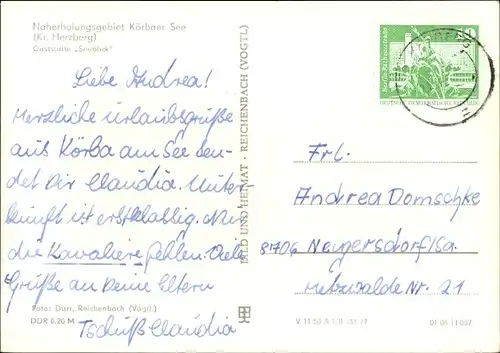 Naherholungsgebiet Körbaer See
(Kr. Herzberg)
Gaststätte „Seeblick"
Liebe Andrea!
Herzliche Urlaubsgrüße
aus Körba am See sen-
det Dir Claudia. Unter-
kunft ist erstklassig. Nur
die Kavaliere fehlen. Viele
Grüße an Deine Eltern
Tschüß Claudia
Foto: Darr, Reichenbach (Vogtl.)
DDR 0,20 M
BILD UND HEIMAT · REICHENBACH (VOGTL)
10
DEUTSCHE DEMOKRATISCHE REPUBLIK
Frl.
Andrea Domschke
8706 Neugersdorf/Sa.
Nr. 21
V 11 50 A 1/B
01 06 11 057